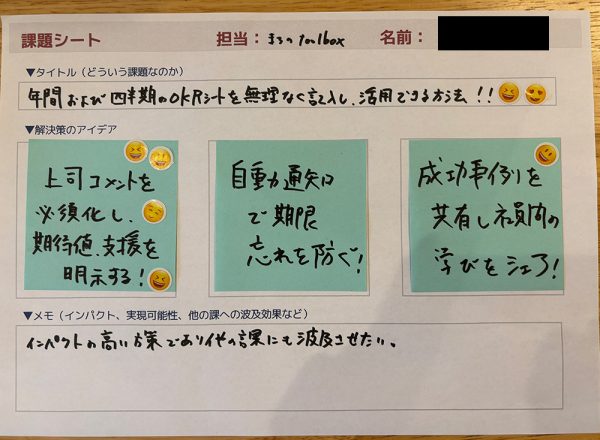 課題シート 担当：まるのtoolbox 名前：
▼タイトル（どういう課題なのか）
年間および四半期のOKRシートを無理なく記入し、活用できる方法！！
▼解決策のアイデア
上司コメントを
必須化し、
期待値、支援を
明示する！
自動通知
で期限
忘れを防ぐ！
成功事例を
共有し社員間の
学びをシェア！
▼メモ（インパクト、実現可能性、他の課への波及効果など）
インパクトの高い方策であり他の課にも波及させたい。